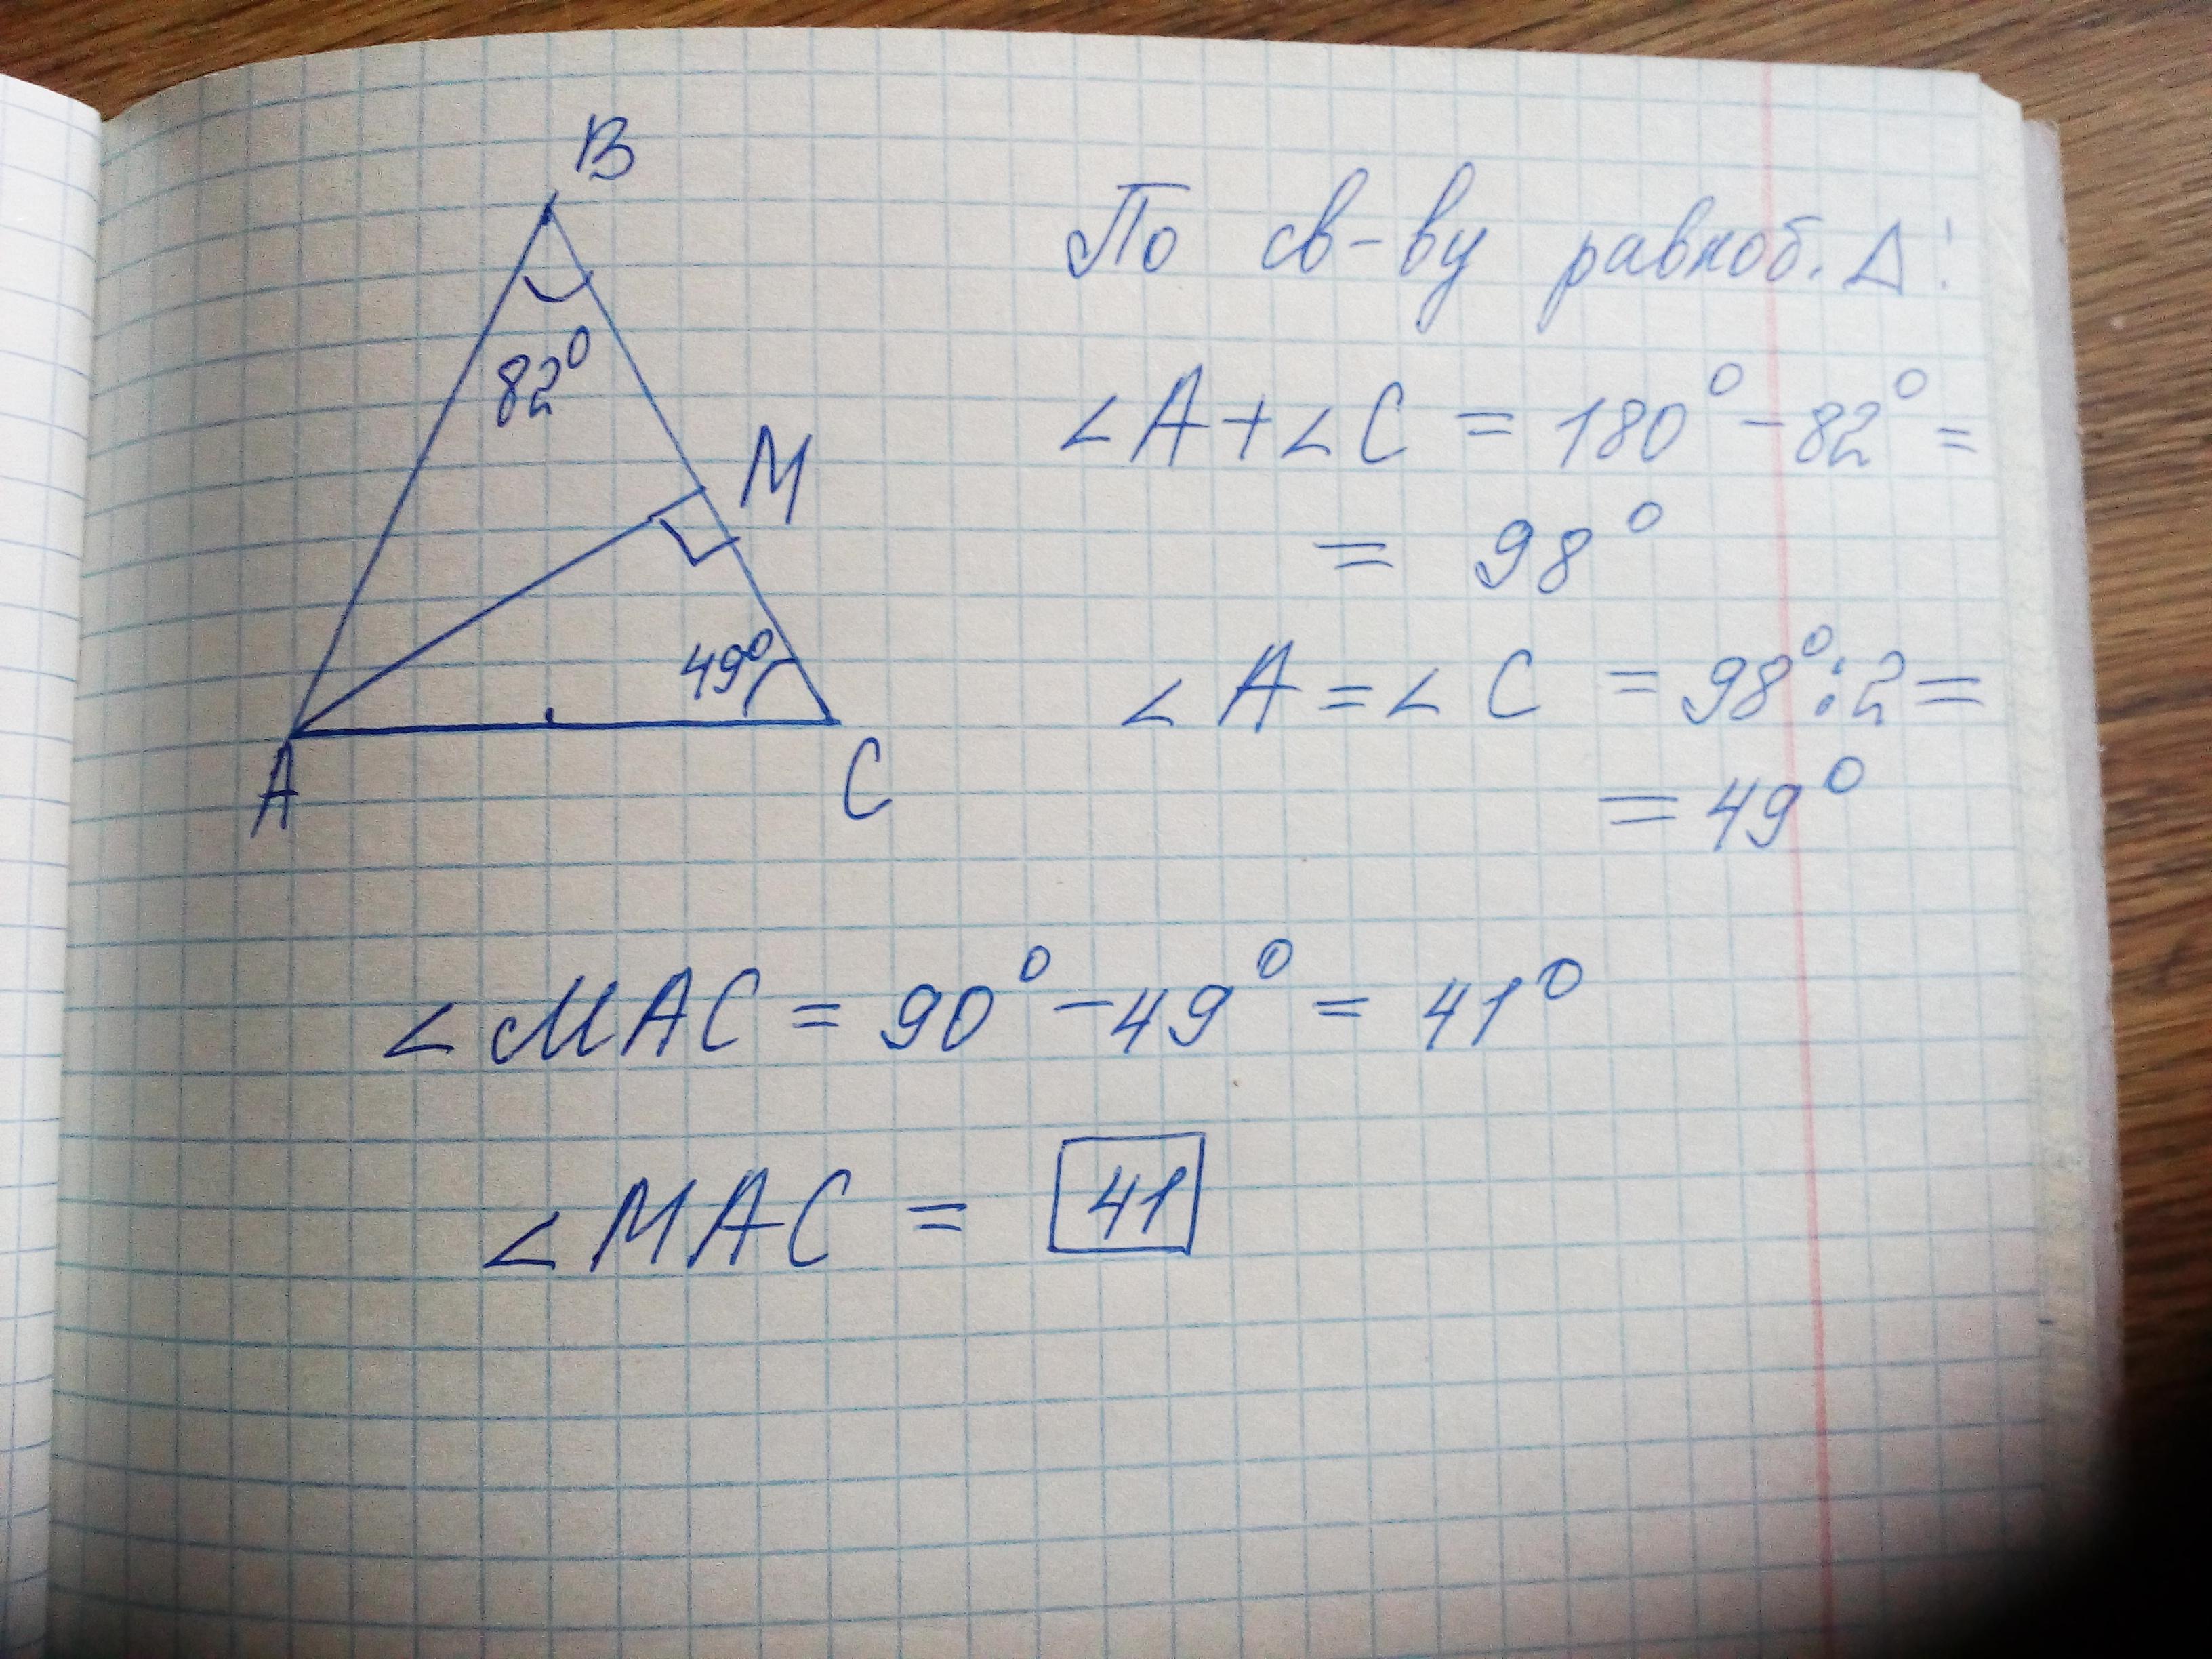 B
82°
M
49°
A
C
По св-ву равноб. Δ:
∠A+∠C = 180° - 82° =
= 98°
∠A = ∠C = 98° : 2 =
= 49°
∠MAC = 90° - 49° = 41°
∠MAC = 41